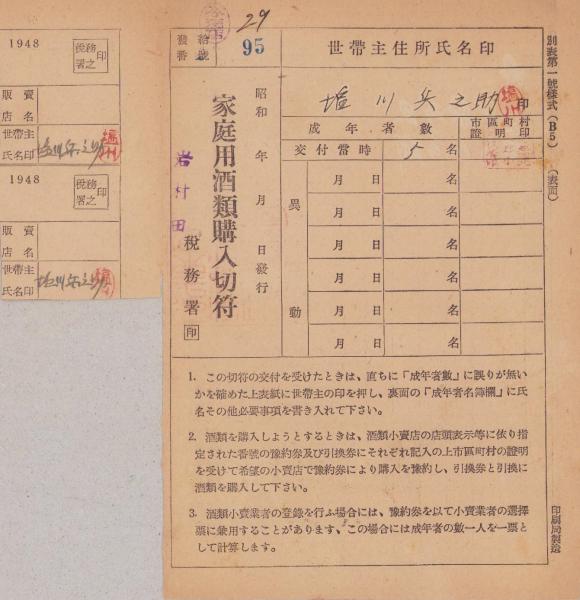 1948
税務署之印
販賣店名
世帶主氏名印
塩川兵之助
1948
税務署之印
販賣店名
世帶主氏名印
塩川兵之助
29
發給番號
95
世帶主住所氏名印
塩川兵之助 印
家庭用酒類購入切符
昭和 年 月 日發行
岩村田
税務署 印
成年者數
市區町村證明印
交付當時 5 名
異動
月 日 名
月 日 名
月 日 名
月 日 名
月 日 名
月 日 名
1. この切符の交付を受けたときは、直ちに「成年者數」に誤りが無い
かを確めた上表紙に世帶主の印を押し、裏面の「成年者名簿欄」に氏
名その他必要事項を書き入れて下さい。
2. 酒類を購入しようとするときは、酒類小賣店の店頭表示等に依り指
定された番號の豫約券及び引換券にそれぞれ記入の上市區町村の證明
を受けて希望の小賣店で豫約券により購入を豫約し、引換券と引換に
酒類を購入して下さい。
3. 酒類小賣業者の登錄を行ふ場合には、豫約券を以て小賣業者の選擇
票に兼用することがあります、この場合には成年者の數一人を一票と
して計算します。
別表第一號樣式(B5) (表面)
印刷局製造